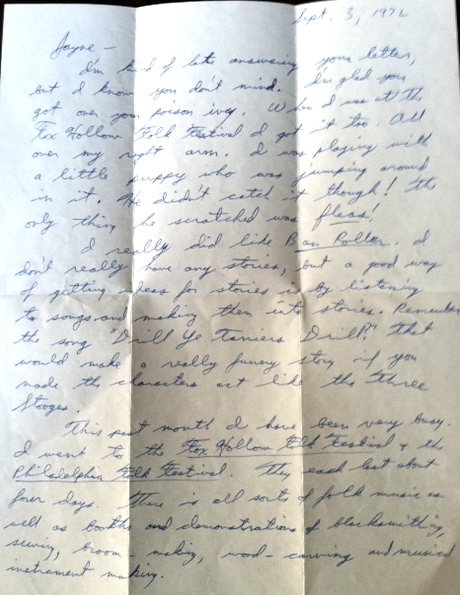 Sept. 3, 1972
Jayne –
I'm kind of late answering your letter,
but I know you don't mind. Im glad you
got over your poison ivy. When I was at the
Fox Hollow Folk Festival I got it too. All
over my right arm. I was playing with
a little puppy who was jumping around
in it. He didn't catch it though! The
only thing he scratched was fleas!
I really did like Ban Potter. I
don't really have any stories, but a good way
of getting ideas for stories is by listening
to songs and making them into stories. Remember
the song "Drill Ye Tarriers Drill?" That
would make a really funny story if you
made the characters act like the Three
Stooges.
This past month I have been very busy.
I went to the Fox Hollow Folk Festival & the
Philadelphia Folk Festival. They each last about
four days. There is all sorts of folk music as
well as booths and demonstrations of blacksmithing,
broom-making, wood-carving and musical
instrument making.